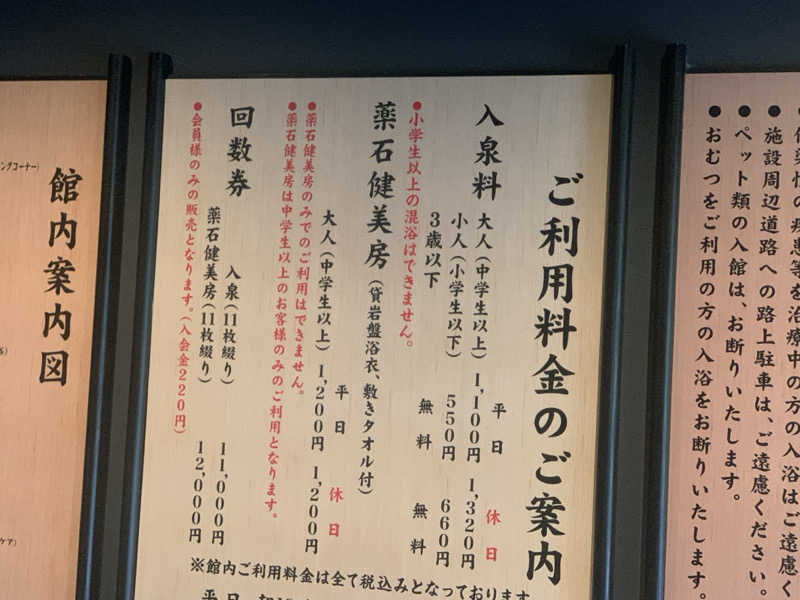 施設周辺道路への路上駐車は、ご遠慮ください。
●ペット類の入館は、お断りいたします。
●おむつをご利用の方の入浴をお断りいたします。
ご利用料金のご案内
平日 休日
入泉料 大人(中学生以上) 1,100円 1,320円
小人(小学生以下) 550円 660円
3歳以下 無料 無料
●小学生以上の混浴はできません。
薬石健美房(貸岩盤浴衣、敷きタオル付)
平日 休日
大人(中学生以上) 1,200円 1,200円
●薬石健美房のみでのご利用はできません。
●薬石健美房は中学生以上のお客様のみのご利用となります。
回数券 入泉(11枚綴り) 11,000円
薬石健美房(11枚綴り) 12,000円
●会員様のみの販売となります。(入会金220円)
※館内ご利用料金は全て税込みとなっております
平日
館内案内図